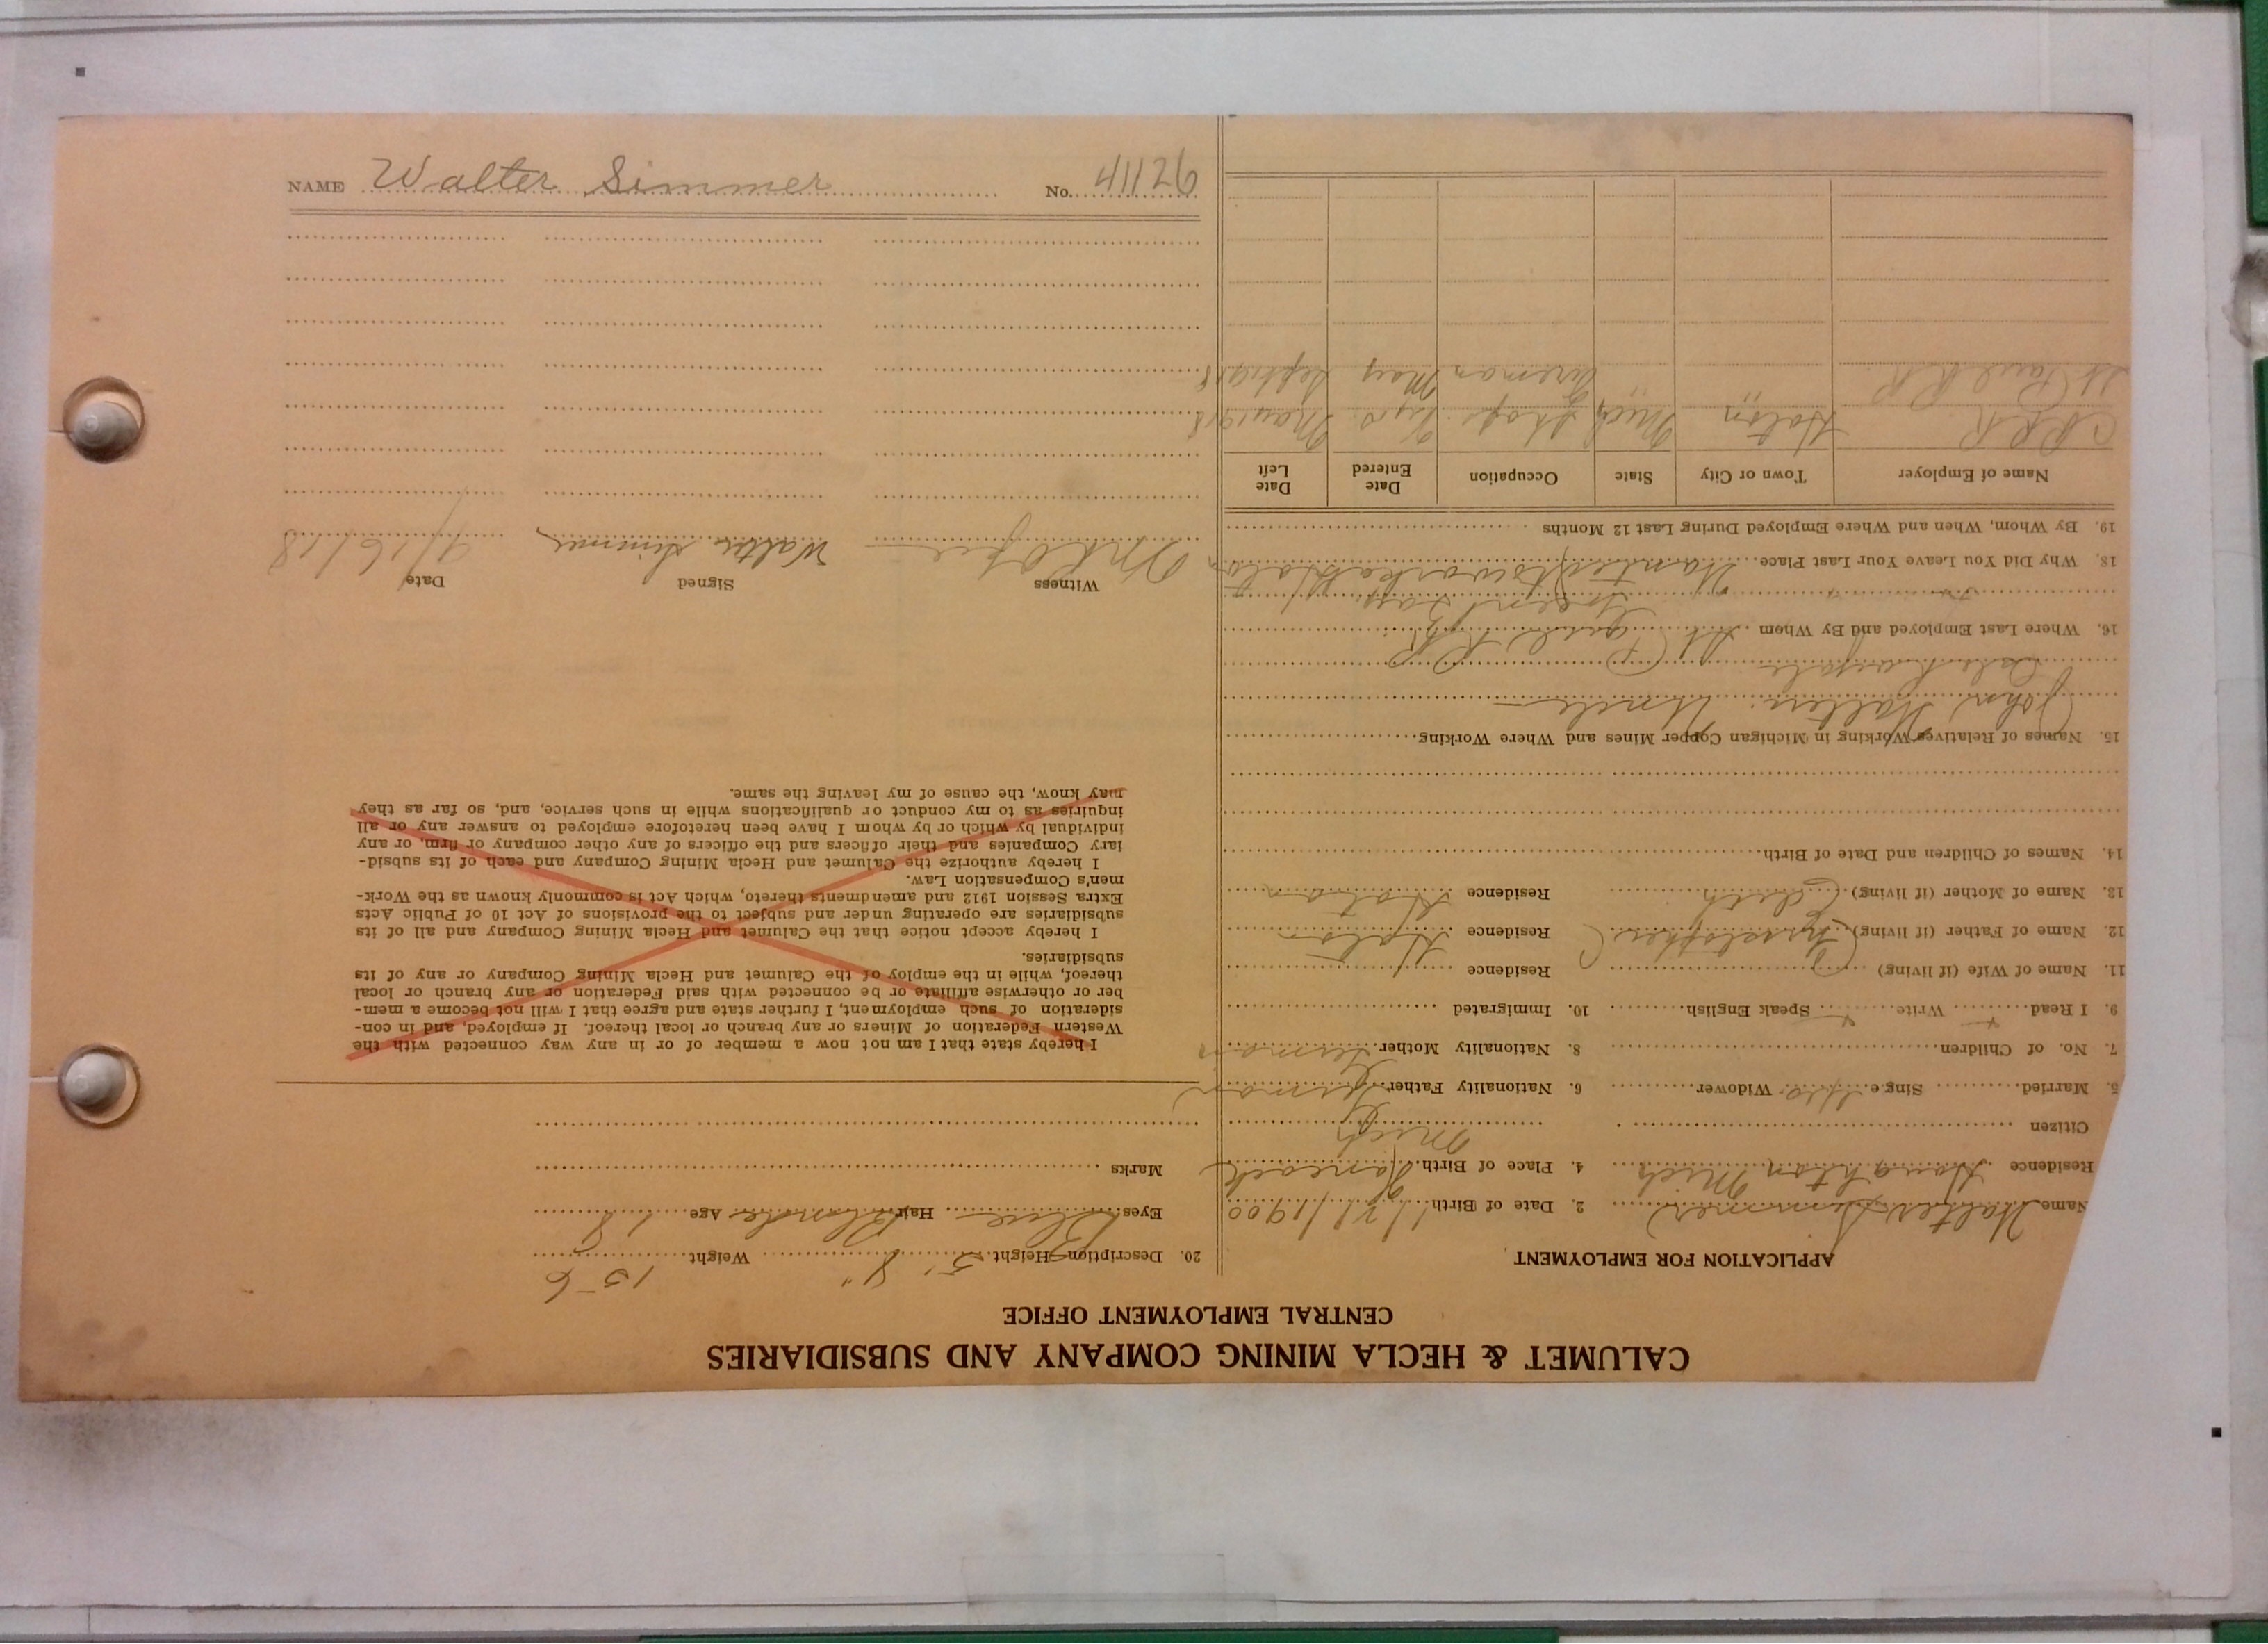 CALUMET & HECLA MINING COMPANY AND SUBSIDIARIES
CENTRAL EMPLOYMENT OFFICE
APPLICATION FOR EMPLOYMENT
Name Walter Simmer 2. Date of Birth 1/21/1900
Residence Houghton Mich 4. Place of Birth Hancock
Mich
Citizen
5. Married Single Yes Widower 6. Nationality Father German
7. No. of Children 8. Nationality Mother German
9. I Read Write Speak English 10. Immigrated
11. Name of Wife (if living) Residence
12. Name of Father (if living) Christopher Residence Hoton
13. Name of Mother (if living) Edith Residence Hoton
14. Names of Children and Date of Birth
15. Names of Relatives Working in Michigan Copper Mines and Where Working
John Uncle
16. Where Last Employed and By Whom St Paul RR
Green Bay
18. Why Did You Leave Your Last Place Wanted to work at Hoton
19. By Whom, When and Where Employed During Last 12 Months
Name of Employer Town or City State Occupation Date Entered Date Left
CRRR Hoton Mich Shops May 1918
St Paul RR " " Fireman May Sept 1918
20. Description—Height 5' 8" Weight 156
Eyes Blue Hair Blonde Age 18
Marks
I hereby state that I am not now a member of or in any way connected with the
Western Federation of Miners or any branch or local thereof. If employed, and in con-
sideration of such employment, I further state and agree that I will not become a mem-
ber or otherwise affiliate or be connected with said Federation or any branch or local
thereof, while in the employ of the Calumet and Hecla Mining Company or any of its
subsidiaries.
I hereby accept notice that the Calumet and Hecla Mining Company and all of its
subsidiaries are operating under and subject to the provisions of Act 10 of Public Acts
Extra Session 1912 and amendments thereto, which Act is commonly known as the Work-
men's Compensation Law.
I hereby authorize the Calumet and Hecla Mining Company and each of its subsid-
iary Companies and their officers and the officers of any other company or firm, or any
individual by which or by whom I have been heretofore employed to answer any or all
inquiries as to my conduct or qualifications while in such service, and, so far as they
may know, the cause of my leaving the same.
Witness Signed Date
Walter Simmer 9/16/18
NAME Walter Simmer No. 41126